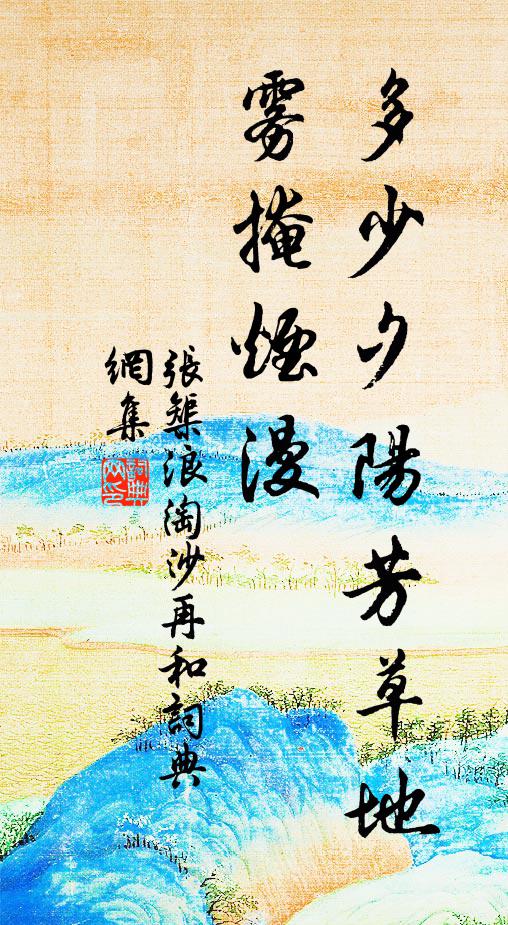 多少夕陽芳草地
雾掩煙漫
張榘浪淘沙再和詞典
網集